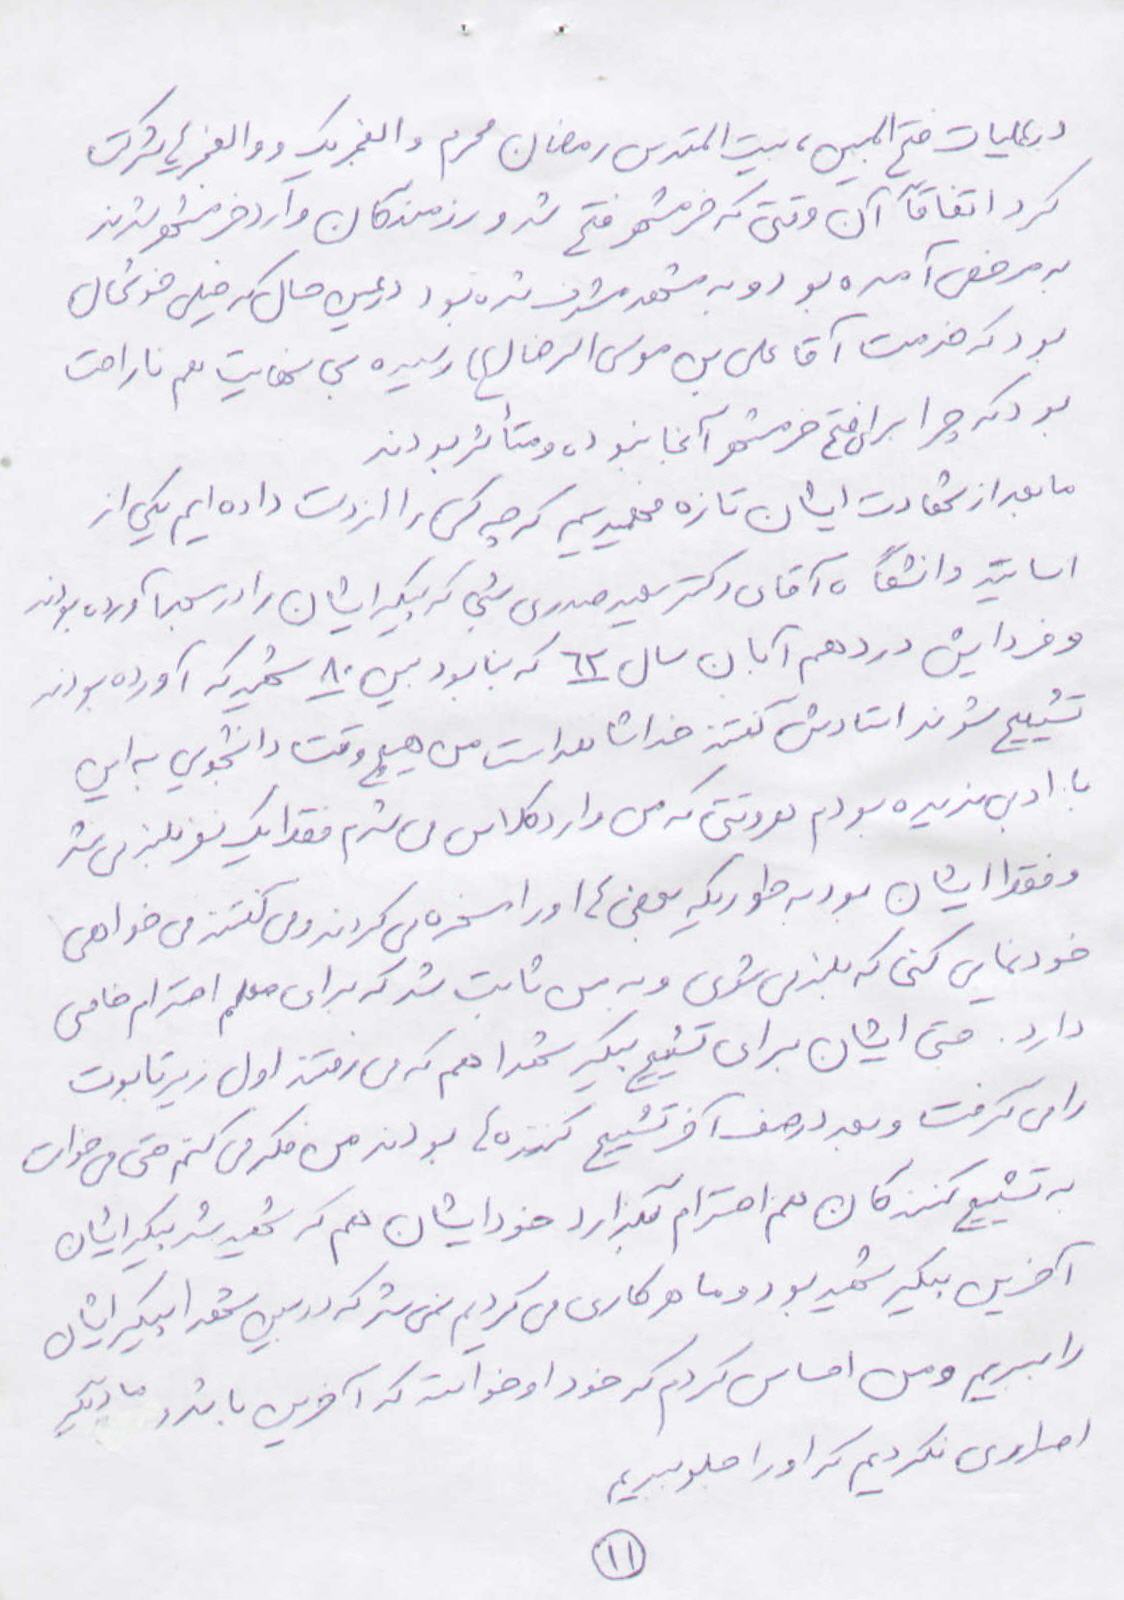 در عملیات فتح المبین، بیت المقدس رمضان محرم والفجر یک و والفجر ۴ شرکت
کرد اتفاقاً آن وقتی که خرمشهر فتح شد و رزمندگان وارد خرمشهر شدند
به مرخصی آمده بود و به مشهد مشرف شده بود در عین حال که خیلی خوشحال
بود که خدمت آقا علی بن موسی الرضا (ع) رسیده بی نهایت هم ناراحت
بود که چرا برای فتح خرمشهر آنجا نبوده و متأثر بودند
ما بعد از شهادت ایشان تازه فهمیدیم که چه کسی را از دست داده ایم یکی از
اساتید دانشگاه آقای دکتر سعید صدری شبی که پیکر ایشان را در آورده بودند
و فردایش در دهم آبان سال ۶۲ که بنا بود بین ۸۰ شهید که آورده بودند
تشییع شوند استادش گفتند خدا شاهد است من هیچ وقت دانشجوی به این
با ادبی ندیده بودم هر وقتی که من وارد کلاس می شدم فقط یک نفر بلند می شد
و فقط ایشان بود به طوریکه بعضی ها او را مسخره می کردند و می گفتند می خواهی
خودنمایی کنی که بلند می شوی و به من ثابت شد که برای معلم احترام خاصی
دارد. حتی ایشان برای تشییع پیکر شهدا هم که می رفتند اول زیر تابوت
را می گرفت و بعد در صف آخر تشییع کننده ها بودند من فکر می کنم حتی می خواست
به تشییع کنندگان هم احترام بگذارد خود ایشان هم که شهید شد پیکر ایشان
آخرین پیکر شهید بود و ما هر کاری می کردیم نمی شد که در بین شهدا پیکر ایشان
را ببریم و من احساس کردم که خود او خواسته که آخرین باشد و ما دیگر
اصراری نکردیم که او را جلو ببریم
۱۱